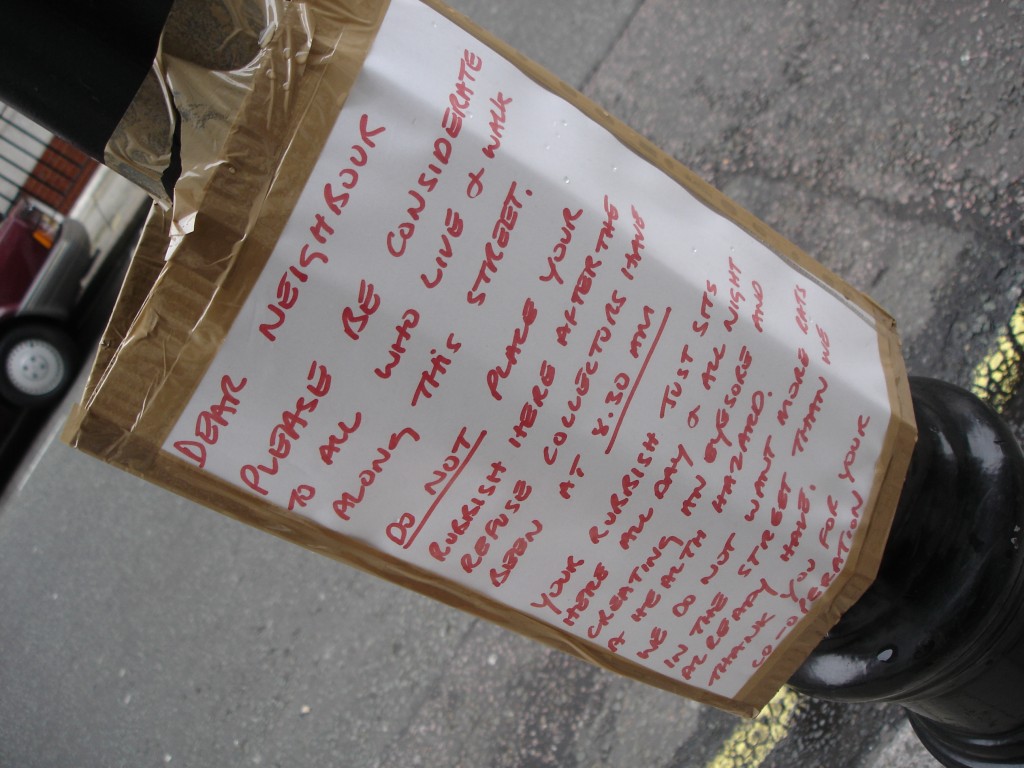 DEAR NEIGHBOUR
PLEASE BE CONSIDERATE
TO ALL WHO LIVE & WALK
ALONG THIS STREET.
DO NOT PLACE YOUR
RUBBISH HERE AFTER THE
REFUSE COLLECTORS HAVE
BEEN AT 8.30 AM
YOUR RUBBISH JUST SITS
HERE ALL DAY & ALL NIGHT
CREATING AN EYESORE AND
A HEALTH HAZARD.
WE DO NOT WANT MORE RATS
IN THE STREET THAN WE
ALREADY HAVE.
THANK YOU FOR YOUR
CO-OPERATION